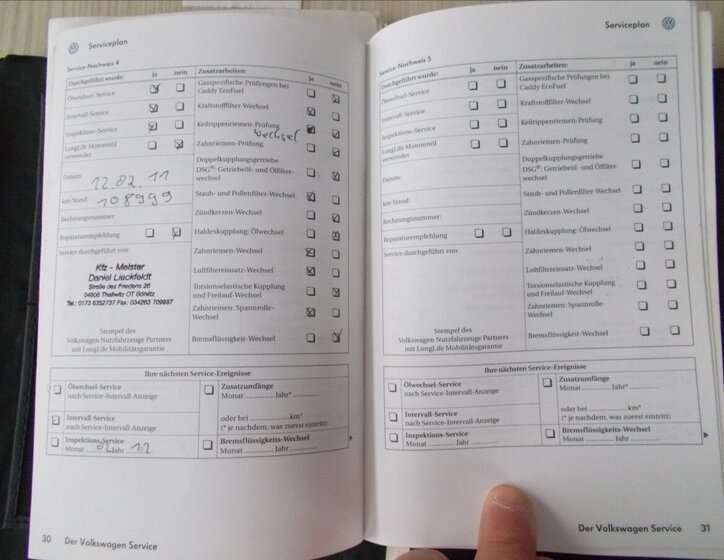 Serviceplan
Service-Nachweis 4
Durchgeführt wurde: ja nein
Ölwechsel-Service
Intervall-Service
Inspektions-Service
LongLife Motorenöl
verwendet
Datum:
12.02.11
km-Stand:
108999
Rechnungsnummer:
Reparaturempfehlung
Service durchgeführt von:
Kfz - Meister
Daniel Lieckfeldt
Straße des Friedens 26
04808 Thallwitz OT Böhlitz
Tel.: 0173 5352737 Fax: 034263 709987
Stempel des
Volkswagen Nutzfahrzeuge Partners
mit LongLife Mobilitätsgarantie
Zusatzarbeiten: ja nein
Gasspezifische Prüfungen bei
Caddy EcoFuel
Kraftstofffilter-Wechsel
Keilrippenriemen-Prüfung
Wechsel
Zahnriemen-Prüfung
Doppelkupplungsgetriebe
DSG®: Getriebeöl- und Ölfilter-
wechsel
Staub- und Pollenfilter-Wechsel
Zündkerzen-Wechsel
Haldexkupplung: Ölwechsel
Zahnriemen-Wechsel
Luftfiltereinsatz-Wechsel
Torsionselastische Kupplung
und Freilauf-Wechsel
Zahnriemen: Spannrolle-
Wechsel
Bremsflüssigkeit-Wechsel
Ihre nächsten Service-Ereignisse
Ölwechsel-Service
nach Service-Intervall-Anzeige
Intervall-Service
nach Service-Intervall-Anzeige
Inspektions-Service
Monat Jahr 12
Zusatzumfänge
Monat Jahr*
oder bei km*
(* je nachdem, was zuerst eintritt)
Bremsflüssigkeits-Wechsel
Monat Jahr
30 Der Volkswagen Service
Serviceplan
Service-Nachweis 5
Durchgeführt wurde: ja nein
Ölwechsel-Service
Intervall-Service
Inspektions-Service
LongLife Motorenöl
verwendet
Datum:
km-Stand:
Rechnungsnummer:
Reparaturempfehlung
Service durchgeführt von:
Stempel des
Volkswagen Nutzfahrzeuge Partners
mit LongLife Mobilitätsgarantie
Zusatzarbeiten: ja nein
Gasspezifische Prüfungen bei
Caddy EcoFuel
Kraftstofffilter-Wechsel
Keilrippenriemen-Prüfung
Zahnriemen-Prüfung
Doppelkupplungsgetriebe
DSG®: Getriebeöl- und Ölfilter-
wechsel
Staub- und Pollenfilter-Wechsel
Zündkerzen-Wechsel
Haldexkupplung: Ölwechsel
Zahnriemen-Wechsel
Luftfiltereinsatz-Wechsel
Torsionselastische Kupplung
und Freilauf-Wechsel
Zahnriemen: Spannrolle-
Wechsel
Bremsflüssigkeit-Wechsel
Ihre nächsten Service-Ereignisse
Ölwechsel-Service
nach Service-Intervall-Anzeige
Intervall-Service
nach Service-Intervall-Anzeige
Inspektions-Service
Monat Jahr
Zusatzumfänge
Monat Jahr*
oder bei km*
(* je nachdem, was zuerst eintritt)
Bremsflüssigkeits-Wechsel
Monat Jahr
Der Volkswagen Service 31